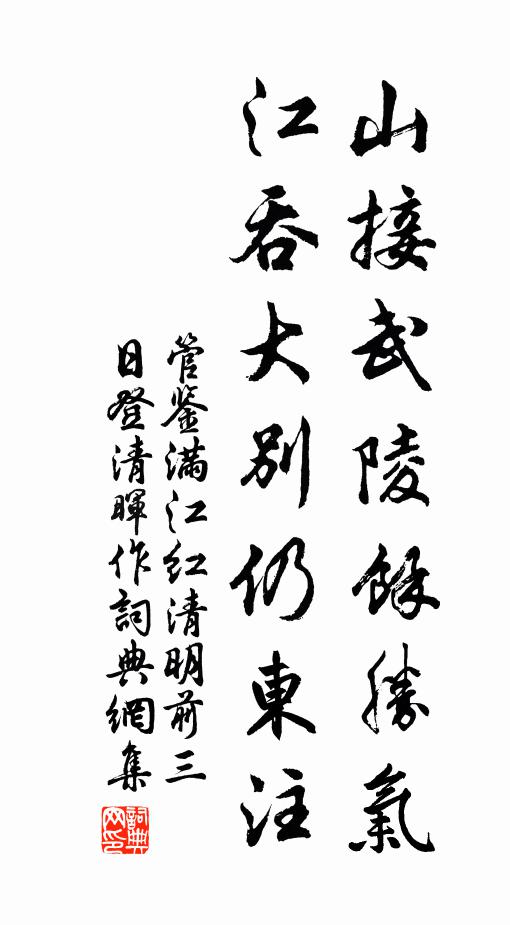 山接武陵餘勝氣
江吞大別仍東注
管鉴满江红清明前三
日登清暉作詞典網集
詞典
网印